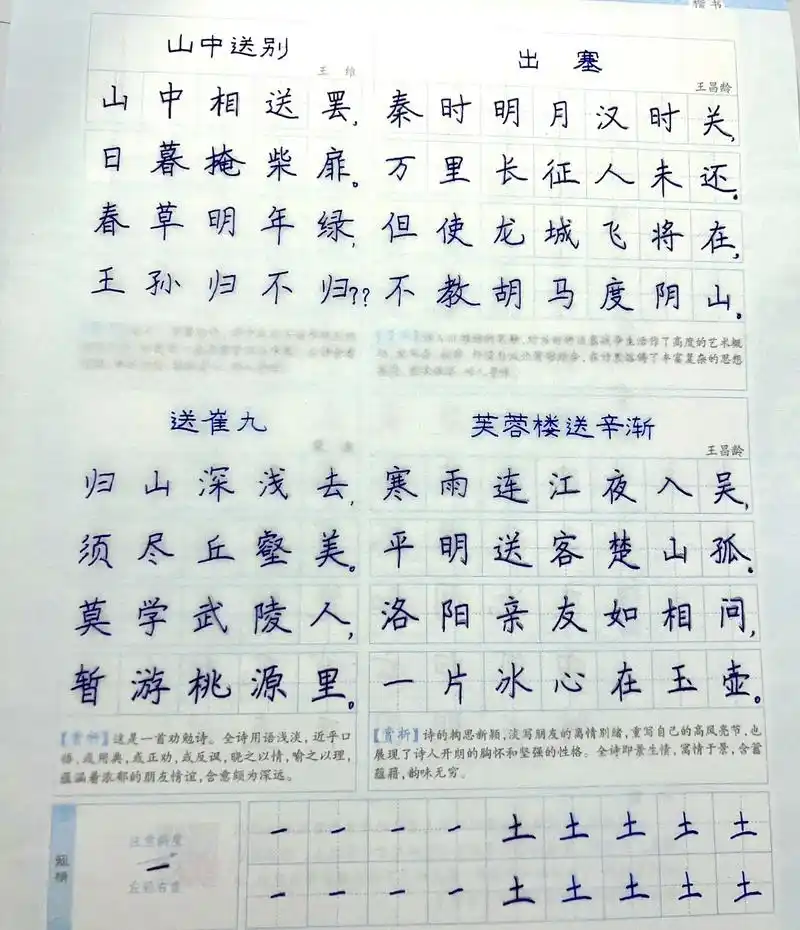 楷书
山中送别
王维
山中相送罢,
日暮掩柴扉。
春草明年绿,
王孙归不归??
出塞
王昌龄
秦时明月汉时关,
万里长征人未还.
但使龙城飞将在,
不教胡马度阴山.
送崔九
归山深浅去,
须尽丘壑美。
莫学武陵人,
暂游桃源里。
【赏析】这是一首劝勉诗。全诗用语浅淡,近乎口
语,或用典,或正劝,或反讽,晓之以情,喻之以理,
蕴涵着浓郁的朋友情谊,含意颇为深远。
芙蓉楼送辛渐
王昌龄
寒雨连江夜入吴,
平明送客楚山孤.
洛阳亲友如相问,
一片冰心在玉壶。
【赏析】诗的构思新颖,淡写朋友的离情别绪,重写自己的高风亮节,也
展现了诗人开朗的胸怀和坚强的性格。全诗即景生情,寓情于景,含蓄
蕴藉,韵味无穷。
短横
注意斜度
一
左轻右重
一一一一土土土土土
一一一一土土土土土